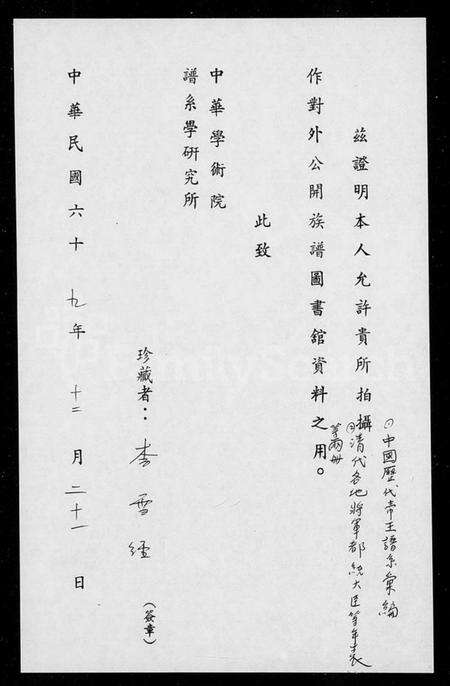 茲證明本人允許貴所拍攝
⑴中國歷代帝王譜系彙編
⑵清代各地將軍都統大臣等年表
等兩冊
作對外公開族譜圖書舘資料之用。
此致
中華學術院
譜系學研究所
珍藏者：李雪
(簽章)
中華民國六十九年十二月二十一日